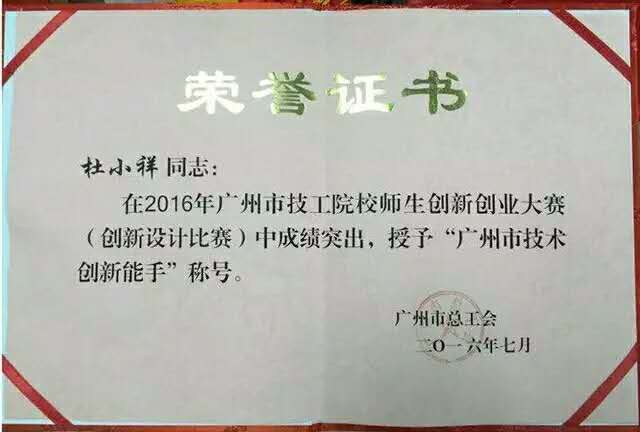 荣誉证书
杜小祥同志：
在2016年广州市技工院校师生创新创业大赛
（创新设计比赛）中成绩突出，授予“广州市技术
创新能手”称号。
广州市总工会
二〇一六年七月